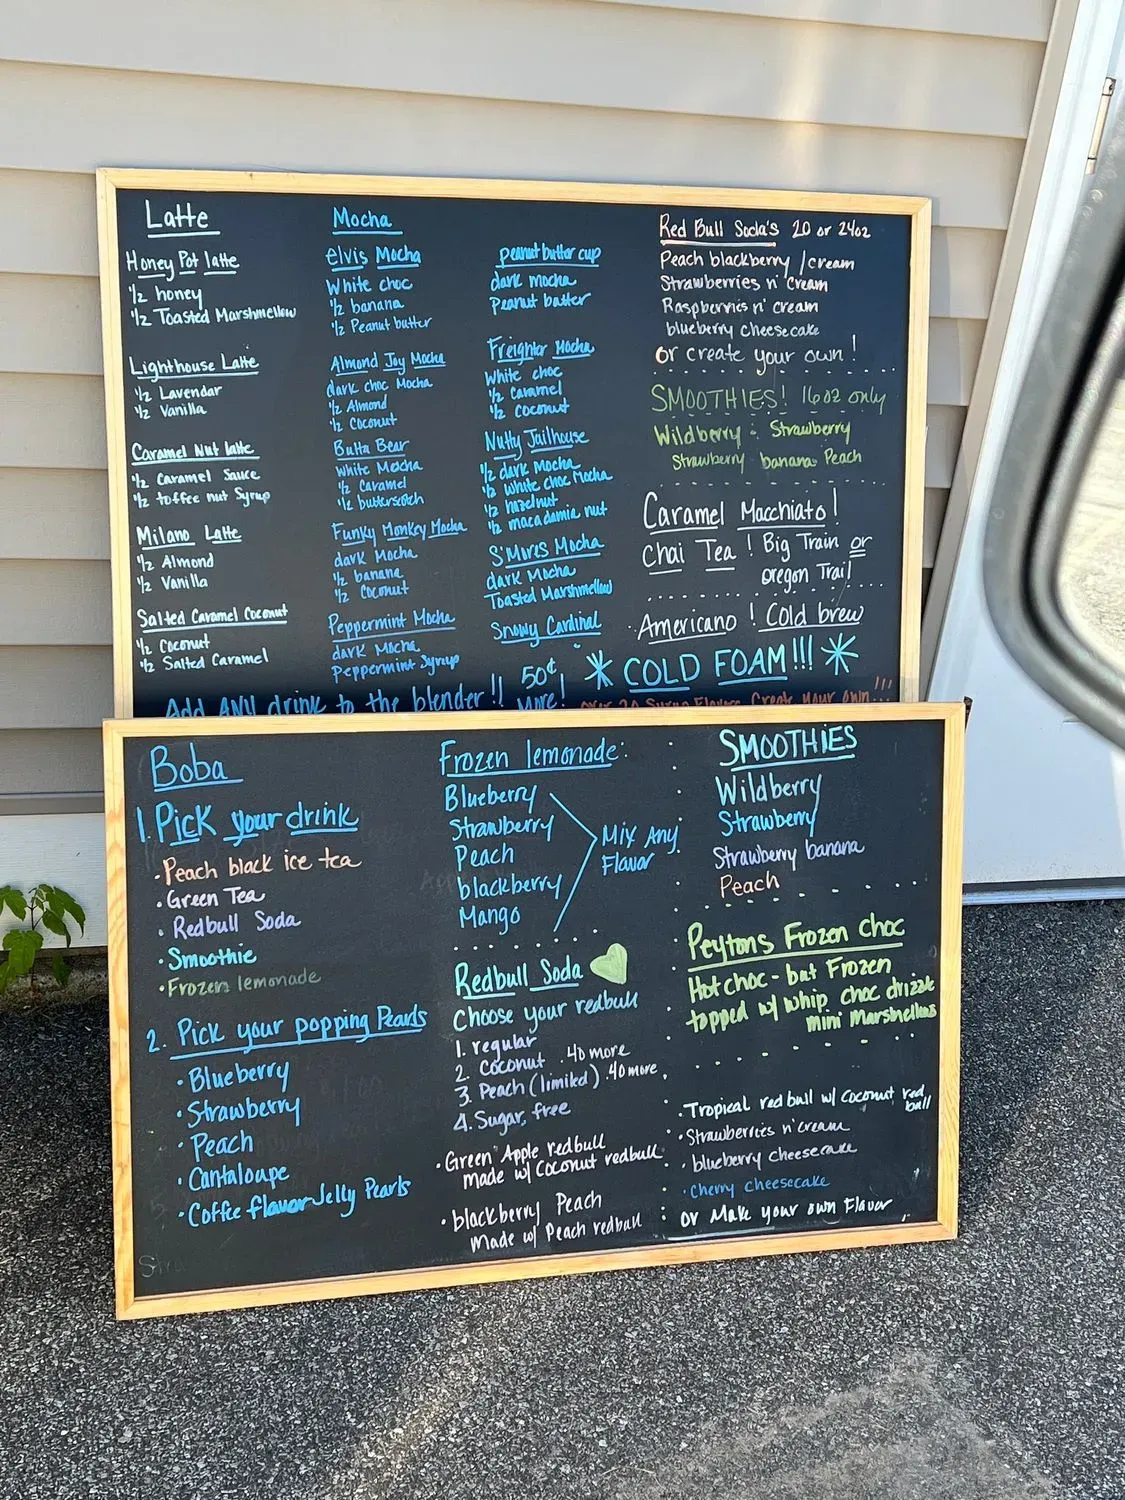 Latte
Honey Pot latte
½ honey
½ Toasted Marshmellow
Lighthouse Latte
½ Lavendar
½ Vanilla
Caramel Nut latte
½ Caramel Sauce
½ toffee nut Syrup
Milano Latte
½ Almond
½ Vanilla
Salted Caramel Coconut
½ Coconut
½ Salted Caramel
Mocha
elvis Mocha
White choc
½ banana
½ Peanut butter
Almond Joy Mocha
dark choc Mocha
½ Almond
½ Coconut
Butta Bear
White Mocha
½ Caramel
½ butterscotch
Funky Monkey Mocha
dark Mocha
½ banana
½ Coconut
Peppermint Mocha
dark Mocha
Peppermint Syrup
peanut butter cup
dark mocha
Peanut butter
Freighter Mocha
White choc
½ Caramel
½ Coconut
Nutty Jailhouse
½ dark Mocha
½ white choc Mocha
½ hazelnut
½ macadamia nut
S'Mores Mocha
dark Mocha
Toasted Marshmellow
Snowy Cardinal
Red Bull Soda's 20 or 24oz
Peach blackberry /cream
Strawberries n' cream
Raspberries n' cream
blueberry cheesecake
or create your own!
SMOOTHIES! 16oz only
Wildberry - Strawberry
Strawberry banana - Peach
Caramel Macchiato!
Chai Tea! Big Train or
oregon Trail
Americano! Cold brew
COLD FOAM!!!
Add ANY drink to the blender!! 50¢
More!
over 20 Syrup Flavors Create your own...!!!
Boba
1. Pick your drink
· Peach black ice tea
· Green Tea
· Redbull Soda
· Smoothie
· Frozen lemonade
2. Pick your popping Pearls
· Blueberry
· Strawberry
· Peach
· Cantaloupe
· Coffee flavor Jelly Pearls
Frozen lemonade:
Blueberry
Strawberry
Peach
blackberry
Mango
Mix Any
Flavor
Redbull Soda
Choose your redbull
1. regular
2. Coconut .40 more
3. Peach (limited) .40 more
4. Sugar free
· Green Apple redbull
made w/ Coconut redbull
· blackberry Peach
Made w/ Peach redbull
SMOOTHIES
Wildberry
Strawberry
Strawberry banana
Peach
Peytons Frozen choc
Hot choc - but Frozen
topped w/ whip choc drizzle
mini Marshmellows
· Tropical red bull w/ Coconut red
bull
· Strawberries n' cream
· blueberry cheesecake
· Cherry cheesecake
or Make your own Flavor